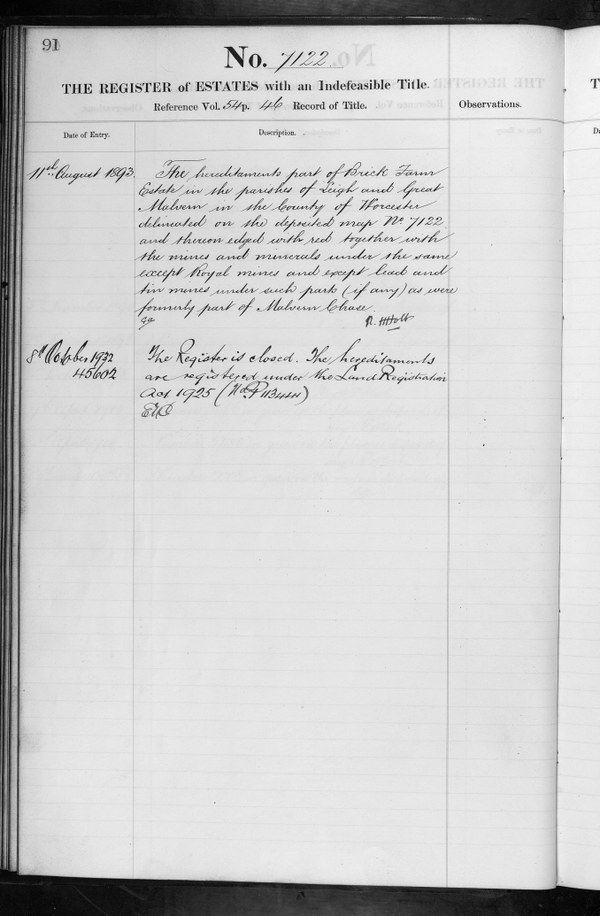 91
No. 7122
THE REGISTER of ESTATES with an Indefeasible Title.
Reference Vol. 54 p. 46 Record of Title.
Observations.
Date of Entry.
Description.
11th August 1893.
The hereditaments part of Brick Farm
Estate in the parishes of Leigh and Great
Malvern in the County of Worcester
delineated on the deposited map No 7122
and thereon edged with red together with
the mines and minerals under the same
except Royal mines and except lead and
tin mines under such park (if any) as were
formerly part of Malvern Chase.
R. Holt
8th October 1932
45602
The Register is closed. The hereditaments
are registered under the Land Registration
Act 1925 (No P113444)